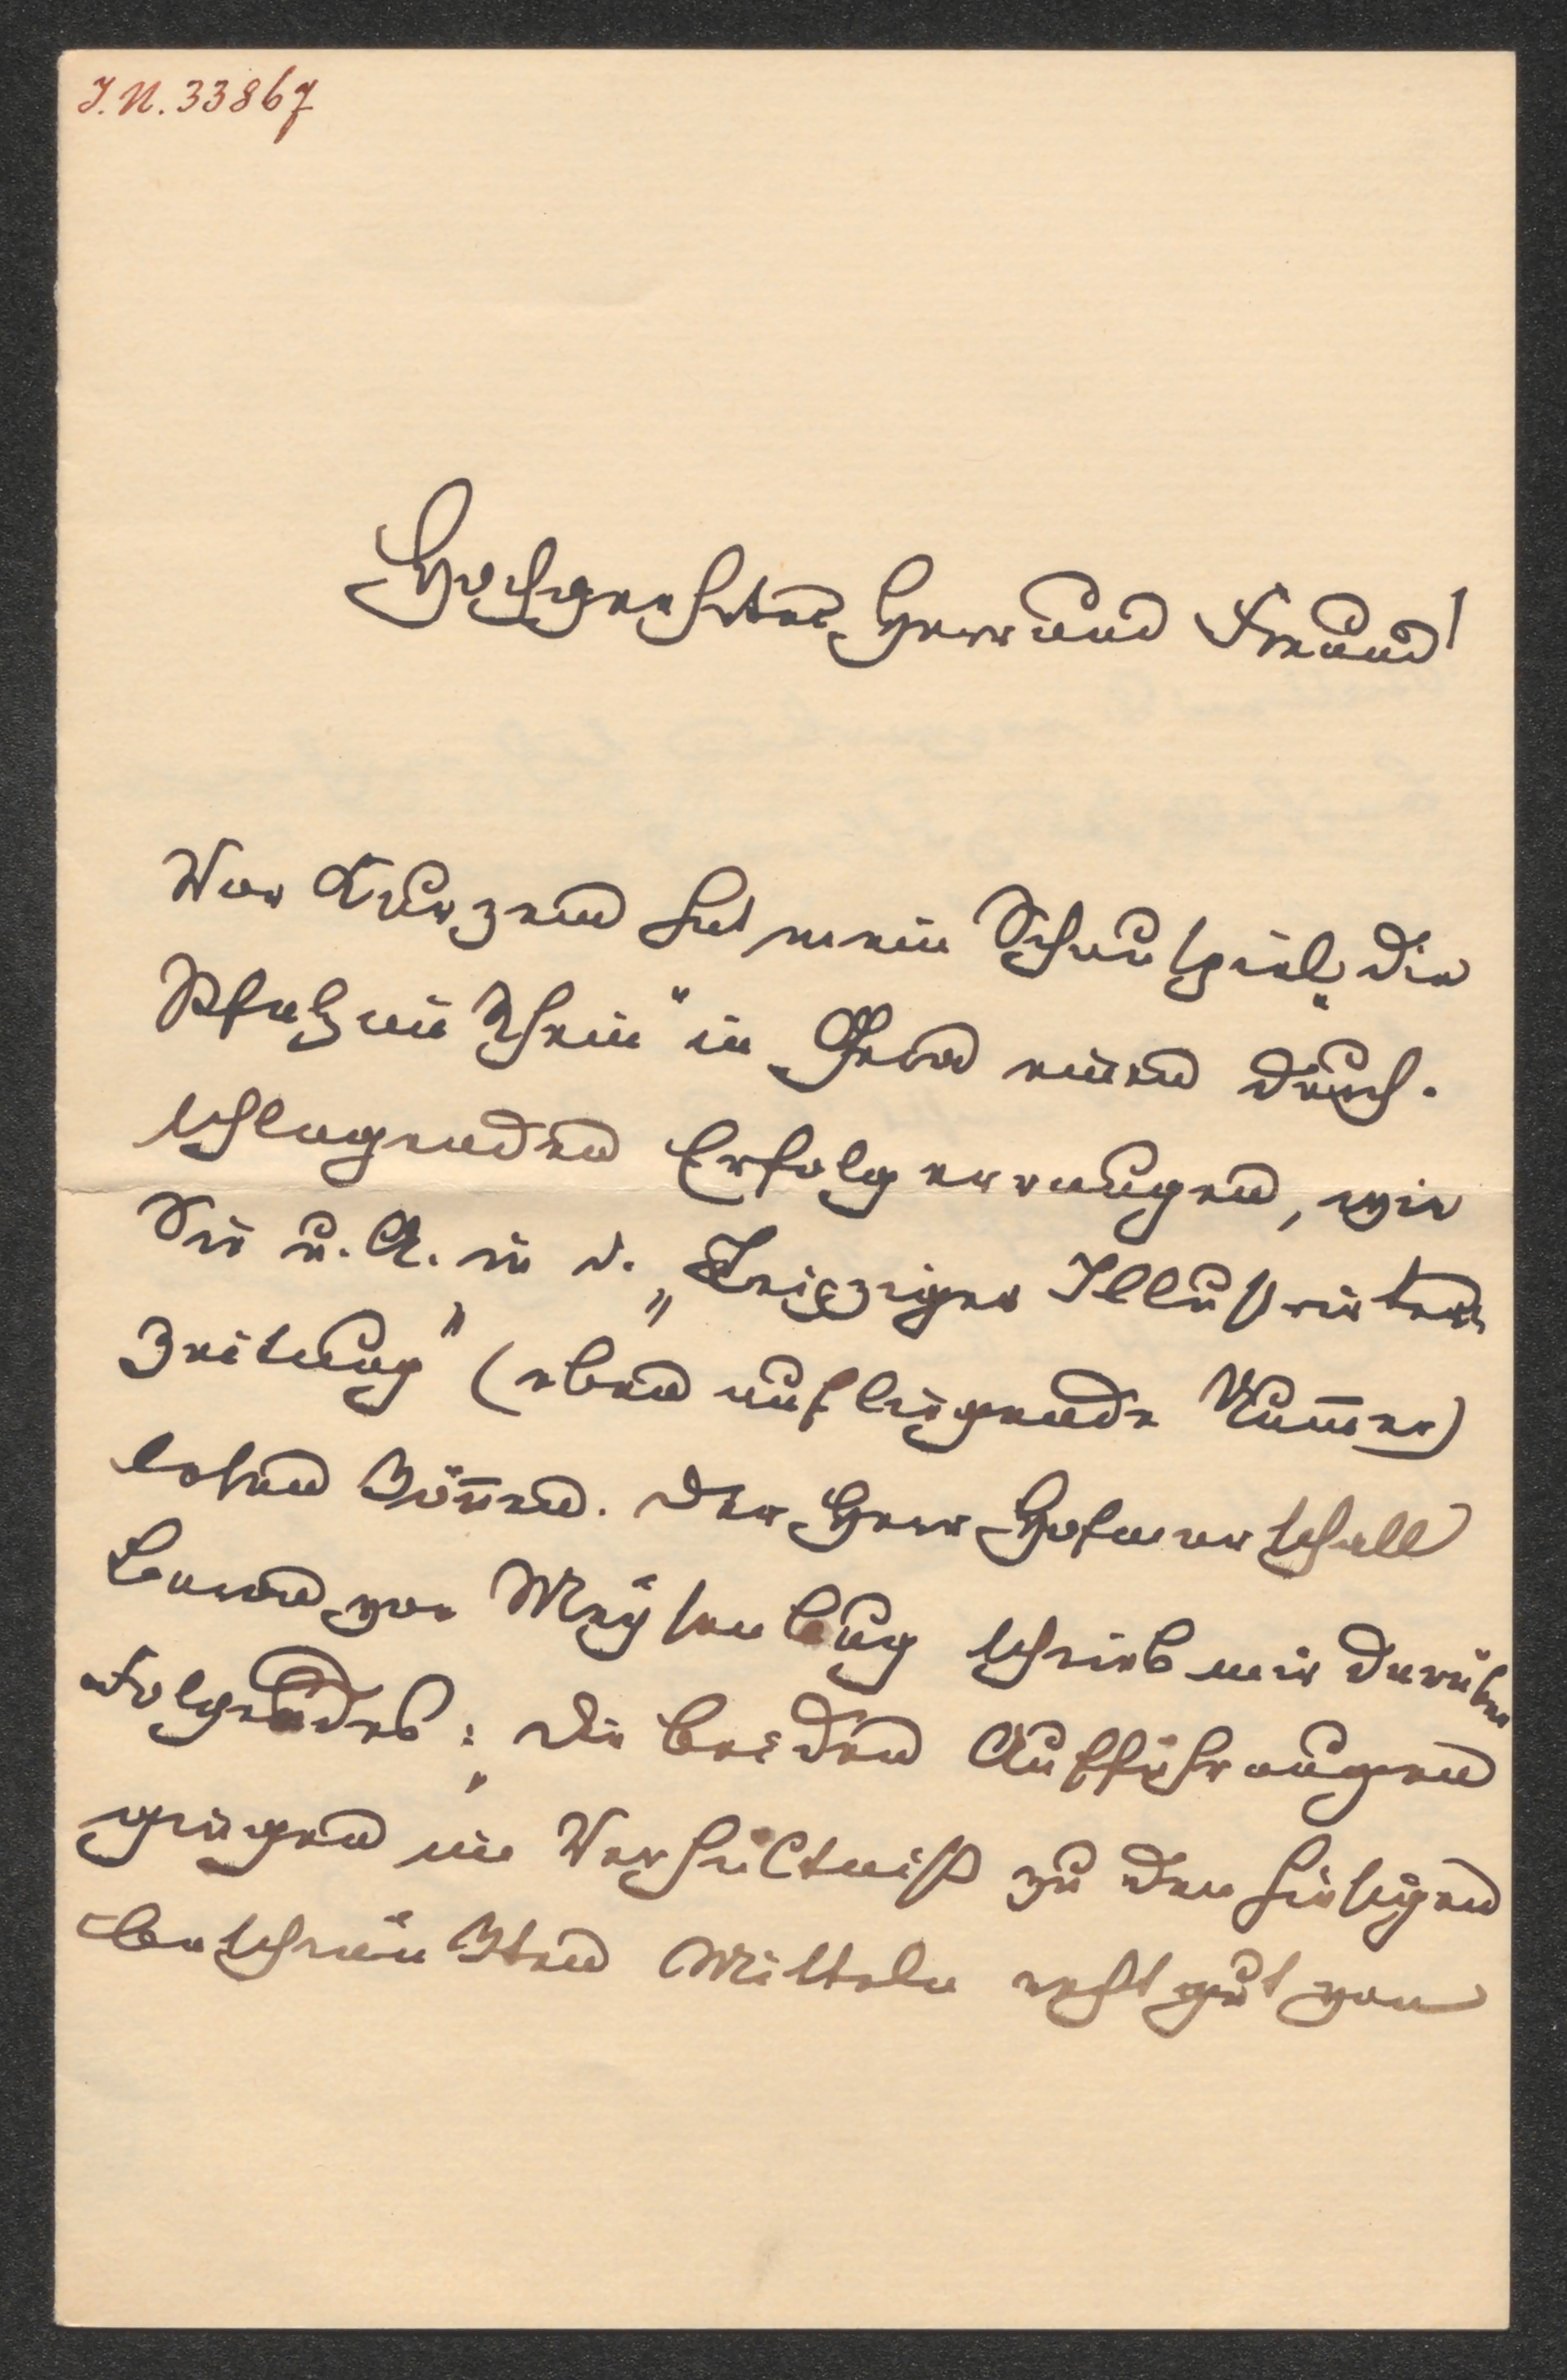 I.N. 33867
Hochgeehrter Herr und Freund!
Vor Kurzem hat mein Schauspiel „Die
Pfalz im Rhein“ in Gera einen durch-
schlagenden Erfolg errungen, wie
Sie u. A. in d. „Leipziger Illustrirten
Zeitung“ (eben aufliegende Nummer)
lesen können. Der Herr Hofmarschall
Baron von Meysenbug schrieb mir darüber
Folgendes: „Die beiden Aufführungen
gingen im Verhältniß zu den hiesigen
beschränkten Mitteln recht gut von